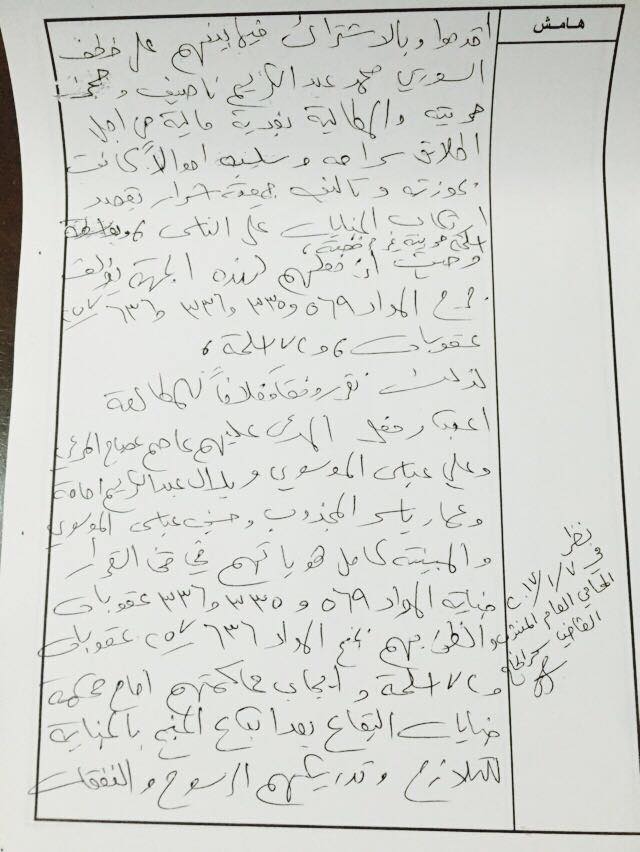 هامش
اقدموا وبالاشتراك فيما بينهم على خطف
السوري محمد عبد الكريم ناصيف وحجز
حريته والمطالبة بفدية مالية من اجل
اطلاق سراحه وسلبه اموالاً كانت
بحوزته وتأليف جمعية اشرار بقصد
ارتكاب الجنايات على الناس
اسلحة حربية غير مرخصة،
وحيث ان فعلهم لهذه الجهة يؤلف
جرم المواد ٥٦٩ و٣٣٥ و٣٣٦ و٦٣٦/٢٥٧
عقوبات و٧٢ اسلحة،
لذلك نقرر وفقاً وخلافاً للمطالعة
اعتبار فعل المدعى عليهم عاصم عصام المرعي
وعلي عباس الموسوي وبلال عبد الكريم
وعمار ياسر المجذوب وحسين عباس الموسوي
والمبينة كامل هوياتهم في متن القرار
جناية المواد ٥٦٩ و٣٣٥ و٣٣٦ عقوبات
والظن بهم بجنح المواد ٦٣٦/٢٥٧ عقوبات
و٧٢ اسلحة وايجاب محاكمتهم امام محكمة
جنايات البقاع بعد اتباع الجنح بالجناية
للتلازم وتدريكهم الرسوم والنفقات
نظر
في ٢٠١٧/١/٧
المحامي العام
القاضي